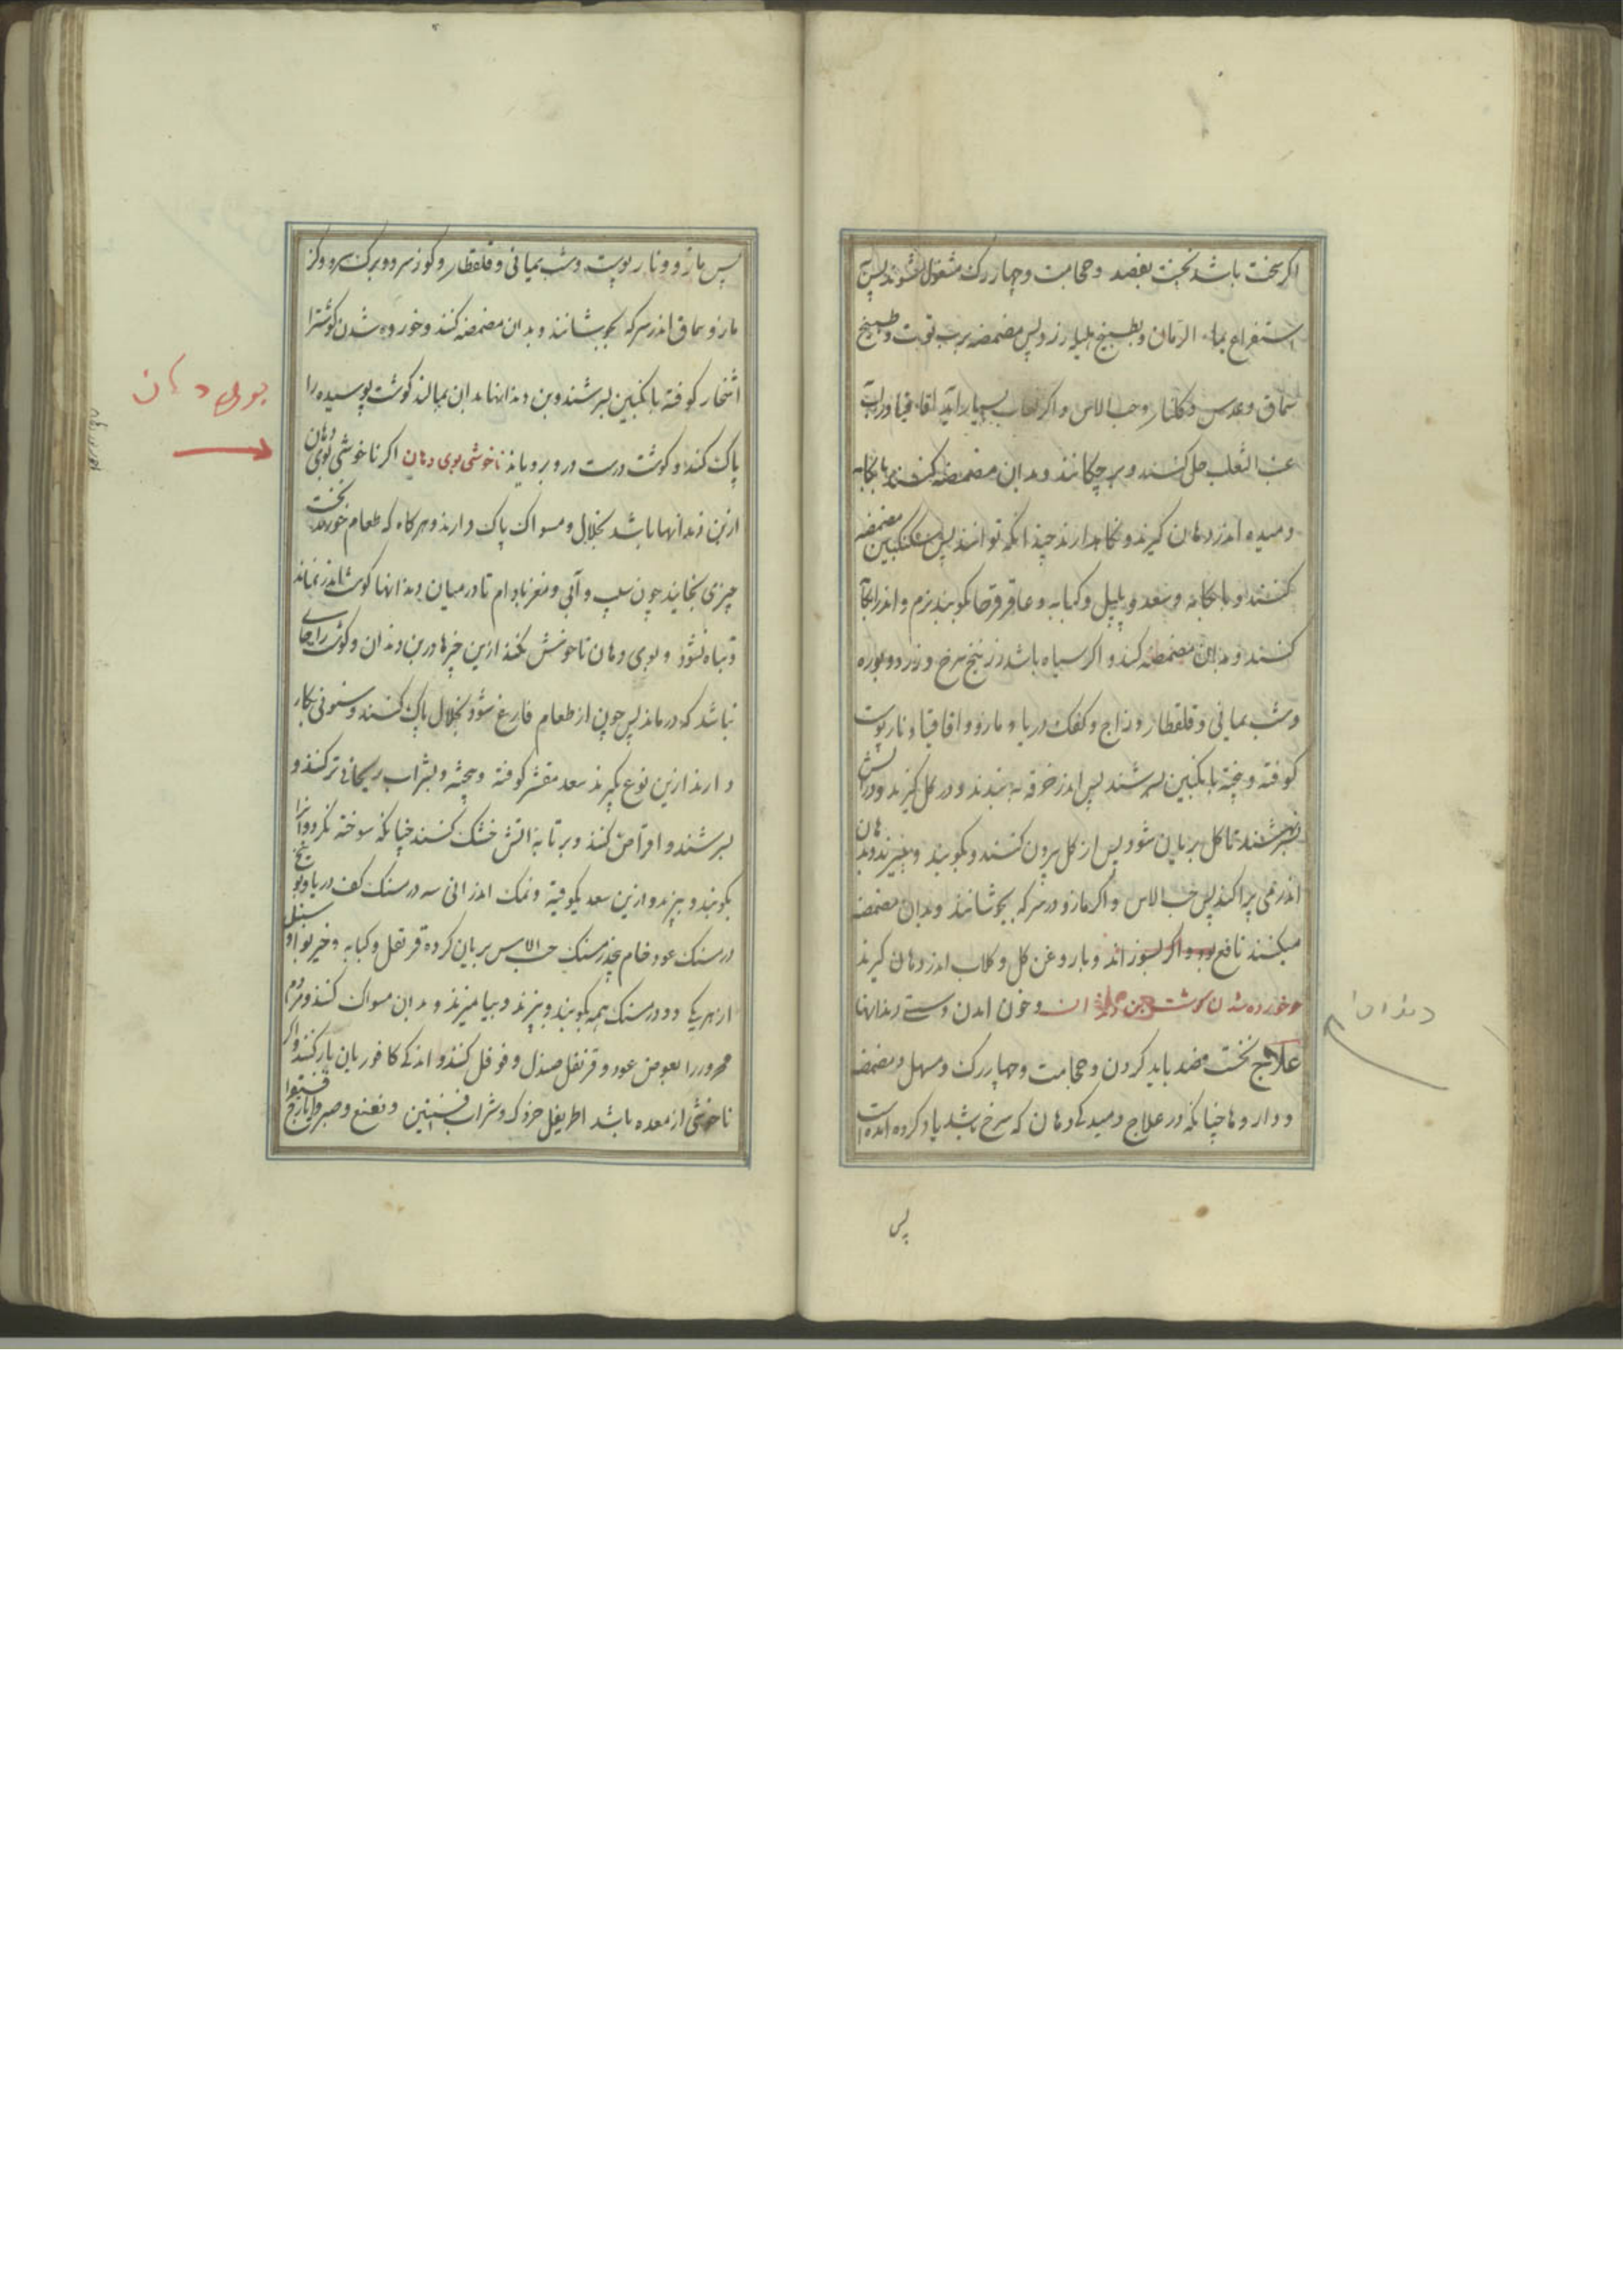 اکر سخت باشد نخست بفصد و حجامت و چهار رک مشغول شوند پس
استفراغ بماء الرمان و بطبیخ هلیله زرد پس مضمضه برب توت و طبیخ
سماق و عدس و کلنار و حب الاس و اکر لعاب بسیار آید اقاقیا در آب
عنب الثعلب حل کنند و بر چکانند و بدان مضمضه کنند با بکامه
و میده اندر دهان کیرند و نکاه دارند چندانکه توانند پس بسکنکبین مضمضه
کنند و با بکامه و سعد و پلپل و کبابه و عاقرقرحا بکوبند نرم و اندر
کنند و بدان مضمضه کند و اکر سیاه باشد زرنیخ سرخ و زرد و بوره
و شب یمانی و قلقطار و زاج و کفک دریا و مازو و اقاقیا و نار پوست
کوفته و بیخته بانکبین بسرشند پس اندر خرقه بندند و در کل کیرند و در آتش
نهند تا کل بریان شود پس از کل بیرون کنند و بکوبند و ببیزند و بدهان
اندر می پراکند پس حب الاس و اکر مازو در سرکه بجوشانند و بدان مضمضه
میکنند نافع بود و اکر بسوزاند و با روغن کل و کلاب اندر دهان کیرند
خورده شدن کوشت بن دندان و خون امدن و سستی دندانها
علاج نخست فصد باید کردن و حجامت و چهار رک و مسهل و مضمضه
و داروها چنانکه در علاج دمیدکی دهان که سرخ باشد یاد کرده امده است
پس
دندان
پس مازو و نار پوست و شب یمانی و قلقطار و کوز سرو و برک سرو و کز
مازو سماق اندر سرکه بجوشانند و بدان مضمضه کنند و خورده شدن کوشت را
اشخار کوفته بانکبین بسرشند و بن دندانها بدان بمالند کوشت پوسیده را
پاک کند و کوشت درست در و برویاند ناخوشی بوی دهان اکر ناخوشی بوی دهان
از بن دندانها باشد بخلال و مسواک پاک دارند و هر کاه که طعام خورند نخست
چیزی بخایند چون سیب و آبی و مغز بادام تا در میان دندانها کوشت اندر نماند
و تباه نشود و بوی دهان ناخوش نکند ازین چیزها در بن دندان و کوشت را جای
نباشد که در ماند پس چون از طعام فارغ شود بخلال پاک کنند و سنونی بکار
دارند ازین نوع بکیرند سعد مقشر کوفته و بیخته و بشراب ریحانی تر کنند و
بسرشند و اقراص کنند و بر تابه اتش خشک کنند چنانکه سوخته نکردد و انرا
بکوبند و ببیزند و ازین سعد یکوقیه و نمک اندرانی سه درمسنک کف دریا و پنج
درمسنک عود خام پنج درمسنک حب الاس بریان کرده قرنفل و کبابه و خیربوا و سنبل
از هر یکی دو درمسنک همه بکوبند و ببیزند و بیامیزند و بدان مسواک کنند و مردم
محرور را بعوض عود و قرنفل صندل و فوفل کنند و اندکی کافور بان یار کنند و اکر
ناخوشی از معده باشد اطریفل خرد که و شراب افسنتین و نعنع و صبر و ایارج فیقرا
بوی دهان